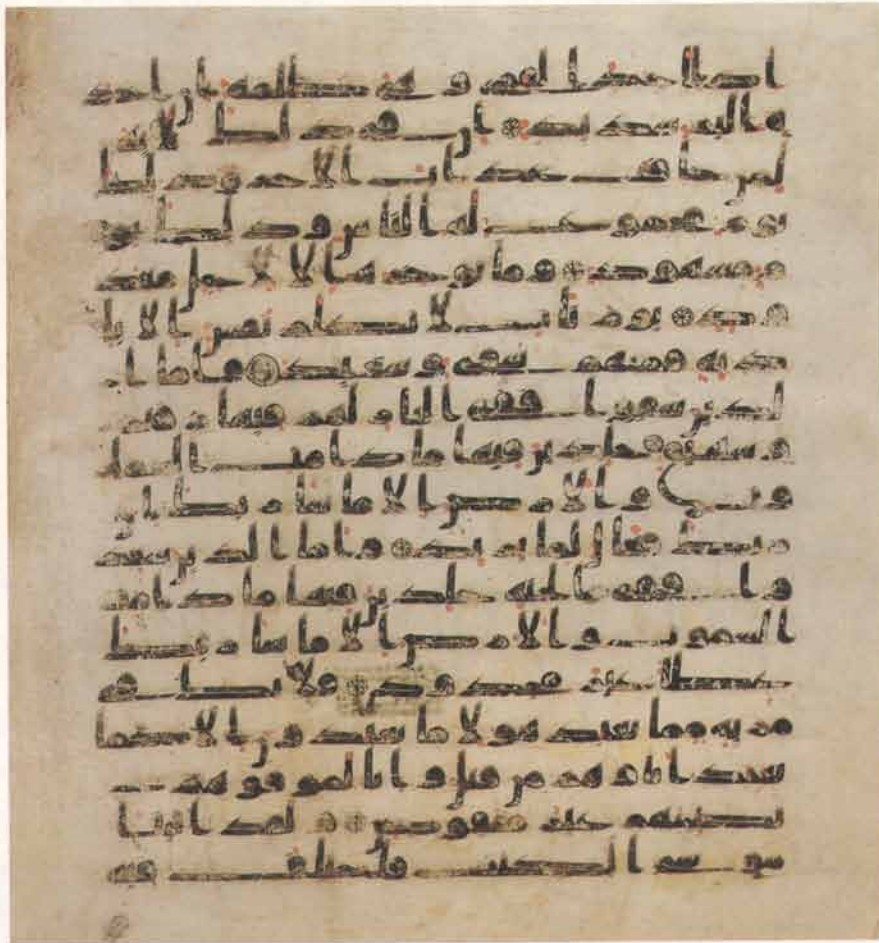 اذا اخذ القرى وهي ظلمه ان اخذه
اليم شديد ان في ذلك لايه
لمن خاف عذاب الاخره ذلك
يوم مجموع له الناس وذلك يو
م مشهود وما نوخره الا لاجل معد
ود يوم يات لا تكلم نفس الا با
ذنه فمنهم شقي وسعيد فاما ا
لذين شقوا ففي النار لهم فيها زفير
وشهيق خلدين فيها ما دامت السمو
ت والارض الا ما شا ربك ان
ربك فعال لما يريد واما الذين سعد
وا ففي الجنه خلدين فيها ما دامت
السموت والارض الا ما شا ربك
عطا غير مجذوذ فلا تك في
مريه مما يعبد هولا ما يعبدون الا كما
يعبد اباوهم من قبل وانا لموفوهم
نصيبهم غير منقوص ولقد اتينا
موسى الكتب فاختلف فيه